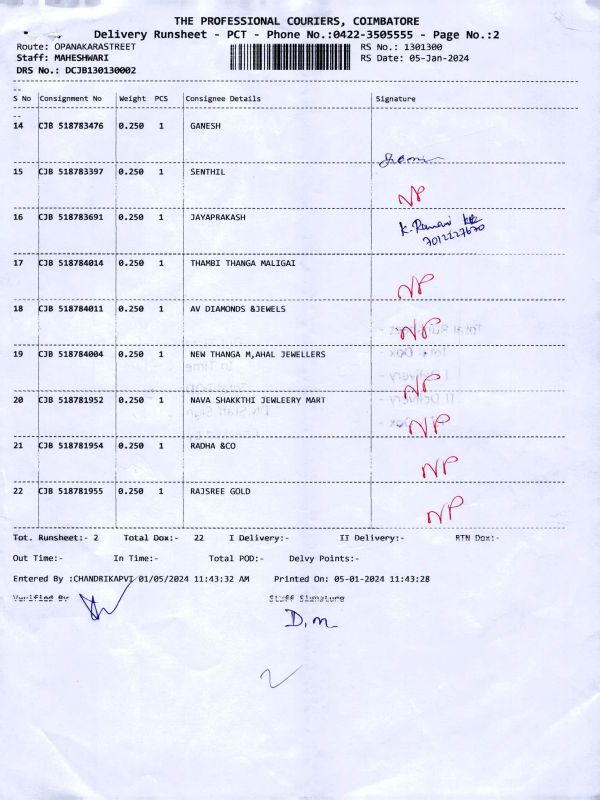 THE PROFESSIONAL COURIERS, COIMBATORE
Delivery Runsheet - PCT - Phone No.:0422-3505555 - Page No.:2
Route: OPANAKARASTREET RS No.: 1301300
Staff: MAHESHWARI RS Date: 05-Jan-2024
DRS No.: DCJB130130002
S No Consignment No Weight PCS Consignee Details Signature
14 CJB 518783476 0.250 1 GANESH
15 CJB 518783397 0.250 1 SENTHIL
NP
16 CJB 518783691 0.250 1 JAYAPRAKASH
K. Ramani
7012227670
17 CJB 518784014 0.250 1 THAMBI THANGA MALIGAI
NP
18 CJB 518784011 0.250 1 AV DIAMONDS &JEWELS
NP
19 CJB 518784004 0.250 1 NEW THANGA M,AHAL JEWELLERS
NP
20 CJB 518781952 0.250 1 NAVA SHAKKTHI JEWLEERY MART
NP
21 CJB 518781954 0.250 1 RADHA &CO
NP
22 CJB 518781955 0.250 1 RAJSREE GOLD
NP
Tot. Runsheet:- 2 Total Dox:- 22 I Delivery:- II Delivery:- RTN Dox:-
Out Time:- In Time:- Total POD:- Delvy Points:-
Entered By :CHANDRIKAPVI 01/05/2024 11:43:32 AM Printed On: 05-01-2024 11:43:28
Verified By Staff Signature
D.M